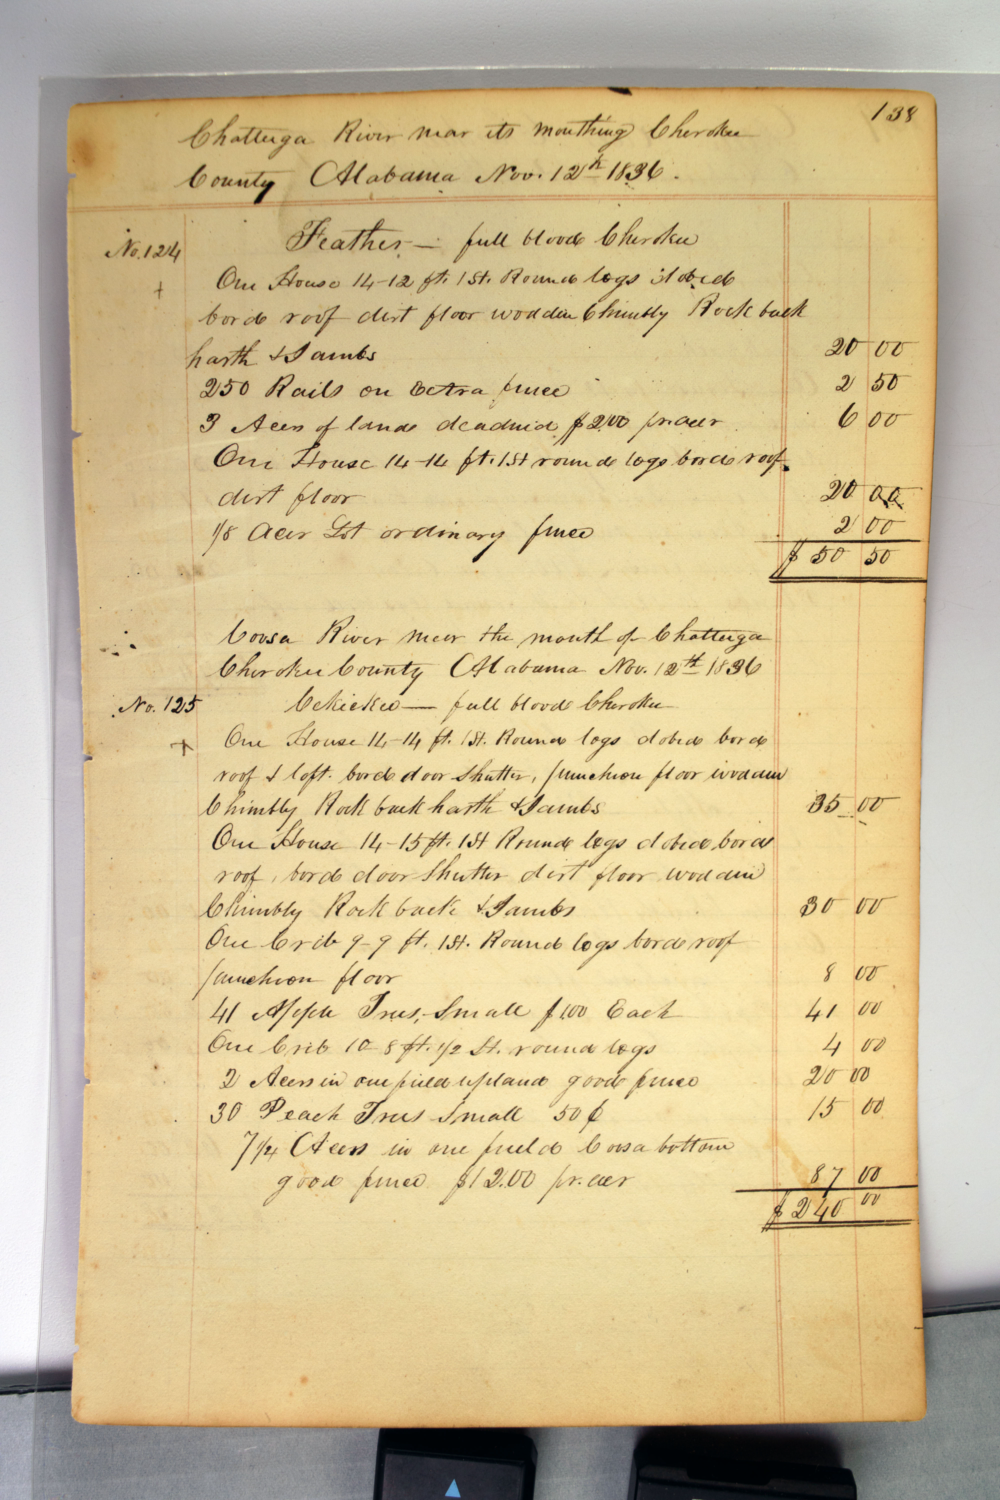 138
Chattuga River near its mouthing Cherokee
County Alabama Nov. 12th 1836.
No. 124 Feather — full blood Cherokee
+ One House 14-12 ft. 1 St. Round logs dobed
bord roof dirt floor wodden Chimbly Rock back
harth & Jambs 20 00
250 Rails on Extra fence 2 50
3 Acers of land deadned $2.00 pr. acer 6 00
One House 14-14 ft. 1 St round logs bord roof
dirt floor 20 00
1/8 Acer Lot ordinary fence 2 00
$ 50 50
Coosa River near the mouth of Chattuga
Cherokee County Alabama Nov. 12th 1836
No. 125 — full blood Cherokee
+ One House 14-14 ft. 1 St. Round logs dobed bord
roof & loft. bord door shutter, puncheon floor wodden
Chimbly Rock back harth & Jambs 35 00
One House 14-15 ft. 1 St Round logs dobed bord
roof, bord door Shutter dirt floor wodden
Chimbly Rock back & Jambs 30 00
One Crib 9-9 ft. 1 St. Round logs bord roof
puncheon floor 8 00
41 Apple Trees, Small $1.00 Each 41 00
One Crib 10-8 ft. 1/2 St. round logs 4 00
2 Acers in one field upland good fence 20 00
30 Peach Trees Small 50 ¢ 15 00
7 1/4 Acers in one field Coosa bottom
good fence $12.00 pr. acer 87 00
$ 240 00